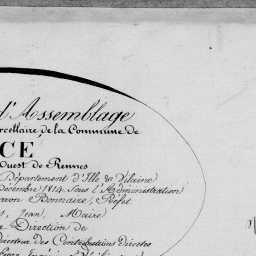 d'Assemblage
rcellaire, de la Commune de
CE
Ouest de Rennes
Département d'Ille & Vilaine
décembre 1814. Sous l'Administration
aron Bonnaire, Préfet
Jean, Maire
Direction de
Directeur des Contributions directes